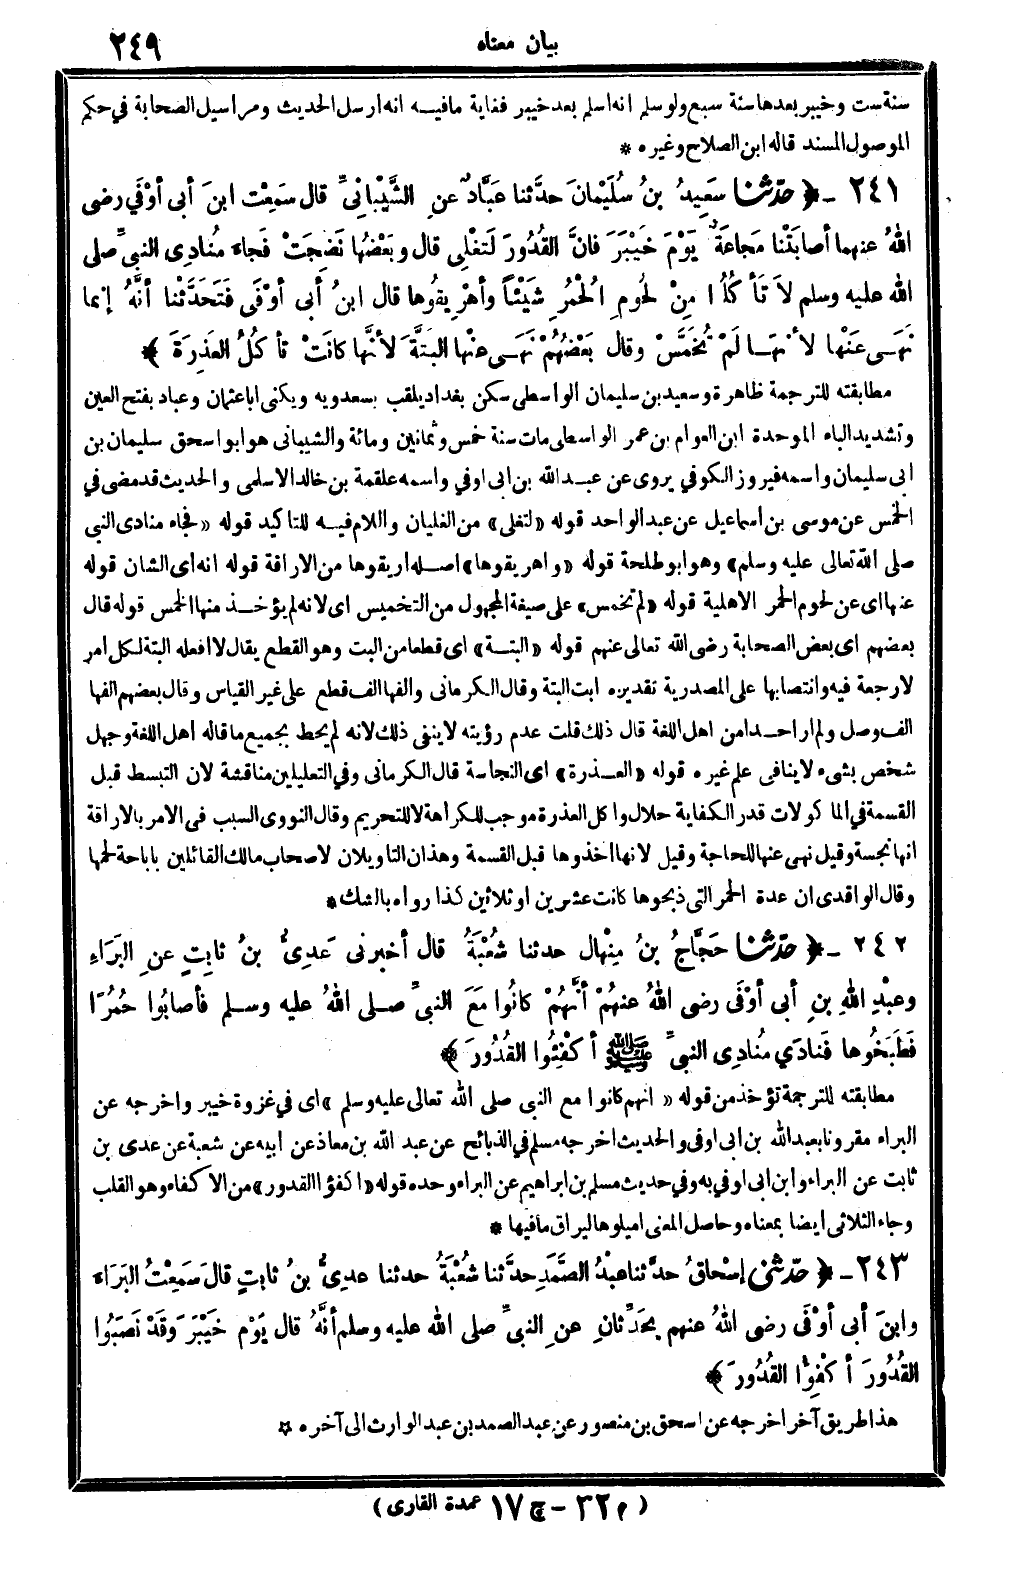 بيان معناه ٢٤٩
سنة ست وخيبر بعدها سنة سبع ولو سلم انه اسلم بعد خيبر فغاية ما فيه انه ارسل الحديث ومراسيل الصحابة في حكم
الموصول المسند قاله ابن الصلاح وغيره *
٢٤١ - ﴿ حدّثنا سَعِيدُ بنُ سُلَيْمَانَ حدَّثنا عَبَّادٌ عنِ الشَّيْبانِيِّ قال سَمِعْت ابنَ أبى أوْفَى رضى
اللهُ عنهما أصابَتْنا مَجاعَةٌ يَوْمَ خَيْبَرَ فانَّ القُدُورَ لَتَغْلِى قال وبَعْضُها نَضِجَتْ فَجاءَ مُنادِى النبىِّ صلى
الله عليه وسلم لاَ تَأْكُلُوا مِنْ لحُومِ الْحُمُرِ شَيْئاً وأهْرِيقُوها قال ابنُ أبى أوْفَى فَتَحَدَّثْنا أنَّهُ إنما
نَهَى عَنْها لأنَّهَا لَمْ تُخَمَّسْ وقال بَعْضُهُمْ نَهَى عنْها البَتَّةَ لأنَّها كانَتْ تأكُلُ العَذِرَةَ ﴾
مطابقته للترجمة ظاهرة وسعيد بن سليمان الواسطى سكن بغداد يلقب بسعدويه ويكنى ابا عثمان وعباد بفتح العين
وتشديد الباء الموحدة ابن العوام بن عمر الواسطى مات سنة خمس وثمانين ومائة والشيبانى هو ابو اسحق سليمان بن
ابى سليمان واسمه فيروز الكوفي يروى عن عبد الله بن ابى اوفي واسمه علقمة بن خالد الاسلمى والحديث قد مضى في
الخمس عن موسى بن اسماعيل عن عبد الواحد قوله «لتغلى» من الغليان واللام فيه للتاكيد قوله «فجاء منادى النبى
صلى الله تعالى عليه وسلم» وهو ابو طلحة قوله «واهريقوها» اصله اريقوها من الاراقة قوله انه اى الشان قوله
عنها اى عن لحوم الحمر الاهلية قوله «لم تخمس» على صيغة المجهول من التخميس اى لانه لم يؤخذ منها الخمس قوله قال
بعضهم اى بعض الصحابة رضى الله تعالى عنهم قوله «البتة» اى قطعا من البت وهو القطع يقال لا افعله البتة لكل امر
لا رجعة فيه وانتصابها على المصدرية تقديره ابت البتة وقال الكرمانى والفها الف قطع على غير القياس وقال بعضهم الفها
الف وصل ولم ار احدا من اهل اللغة قال ذلك قلت عدم رؤيته لا ينفى ذلك لانه لم يحط بجميع ما قاله اهل اللغة وجهل
شخص بشىء لا ينافى علم غيره قوله «العذرة» اى النجاسة قال الكرمانى وفي التعليلين مناقشة لان التبسط قبل
القسمة في الماكولات قدر الكفاية حلال واكل العذرة موجب للكراهة لا للتحريم وقال النووى السبب فى الامر بالاراقة
انها نجسة وقيل نهى عنها للحاجة وقيل لانها اخذوها قبل القسمة وهذان التاويلان لاصحاب مالك القائلين باباحة لحمها
وقال الواقدى ان عدة الحمر التى ذبحوها كانت عشرين او ثلاثين كذا رواه بالشك *
٢٤٢ - ﴿ حدّثنا حَجَّاجُ بنُ مِنْهال حدثنا شُعْبَةُ قال أخبرنى عَدِىُّ بنُ ثابِتٍ عنِ البَرَاءِ
وعبْدِ اللهِ بنِ أبى أوْفَى رضى اللهُ عنهُمْ أنَّهُمْ كانُوا مَعَ النبىِّ صلى اللهُ عليه وسلم فأصابُوا حُمُرًا
فَطَبَخُوها فَنادَي مُنادِى النبىِّ ﷺ أكْفِئُوا القُدُورَ ﴾
مطابقته للترجمة تؤخذ من قوله «انهم كانوا مع النبى صلى الله تعالى عليه وسلم» اى في غزوة خيبر واخرجه عن
البراء مقرونا بعبد الله بن ابى اوفى والحديث اخرجه مسلم في الذبائح عن عبد الله بن معاذ عن ابيه عن شعبة عن عدى بن
ثابت عن البراء وابن ابى اوفي به وفي حديث مسلم بن ابراهيم عن البراء وحده قوله «اكفؤا القدور» من الاكفاء وهو القلب
وجاء الثلاثى ايضا بمعناه وحاصل المعنى اميلوها ليراق ما فيها *
٢٤٣ - ﴿ حدّثنى إسْحاقُ حدّثنا عبْدُ الصَّمَدِ حدَّثنا شُعْبَةُ حدثنا عدِىُّ بنُ ثابتٍ قالَ سَمِعْتُ البَرَاءَ
وابنَ أبى أوْفَى رضى اللهُ عنهم يحَدِّثانِ عنِ النبىِّ صلى الله عليه وسلم أنَّهُ قال يَوْم خَيْبَرَ وقَدْ نَصَبُوا
القُدُورَ أكْفِؤُا القُدُورَ ﴾
هذا طريق آخر اخرجه عن اسحق بن منصور عن عبد الصمد بن عبد الوارث الى آخره *
(م ٣٢ - ج ١٧ عمدة القارى)